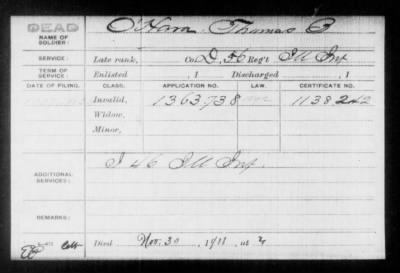 DEAD O'Hara Thomas B
NAME OF
SOLDIER:
SERVICE: Late rank, Co. D, 56 Reg't Ill Inf
TERM OF
SERVICE: Enlisted , 1 Discharged , 1
DATE OF FILING. CLASS. APPLICATION NO. LAW. CERTIFICATE NO.
Invalid, 1363738 1138242
Widow,
Minor,
I 46 Ill Inf.
ADDITIONAL
SERVICES:
REMARKS:
Died Nov. 30, 1911, at